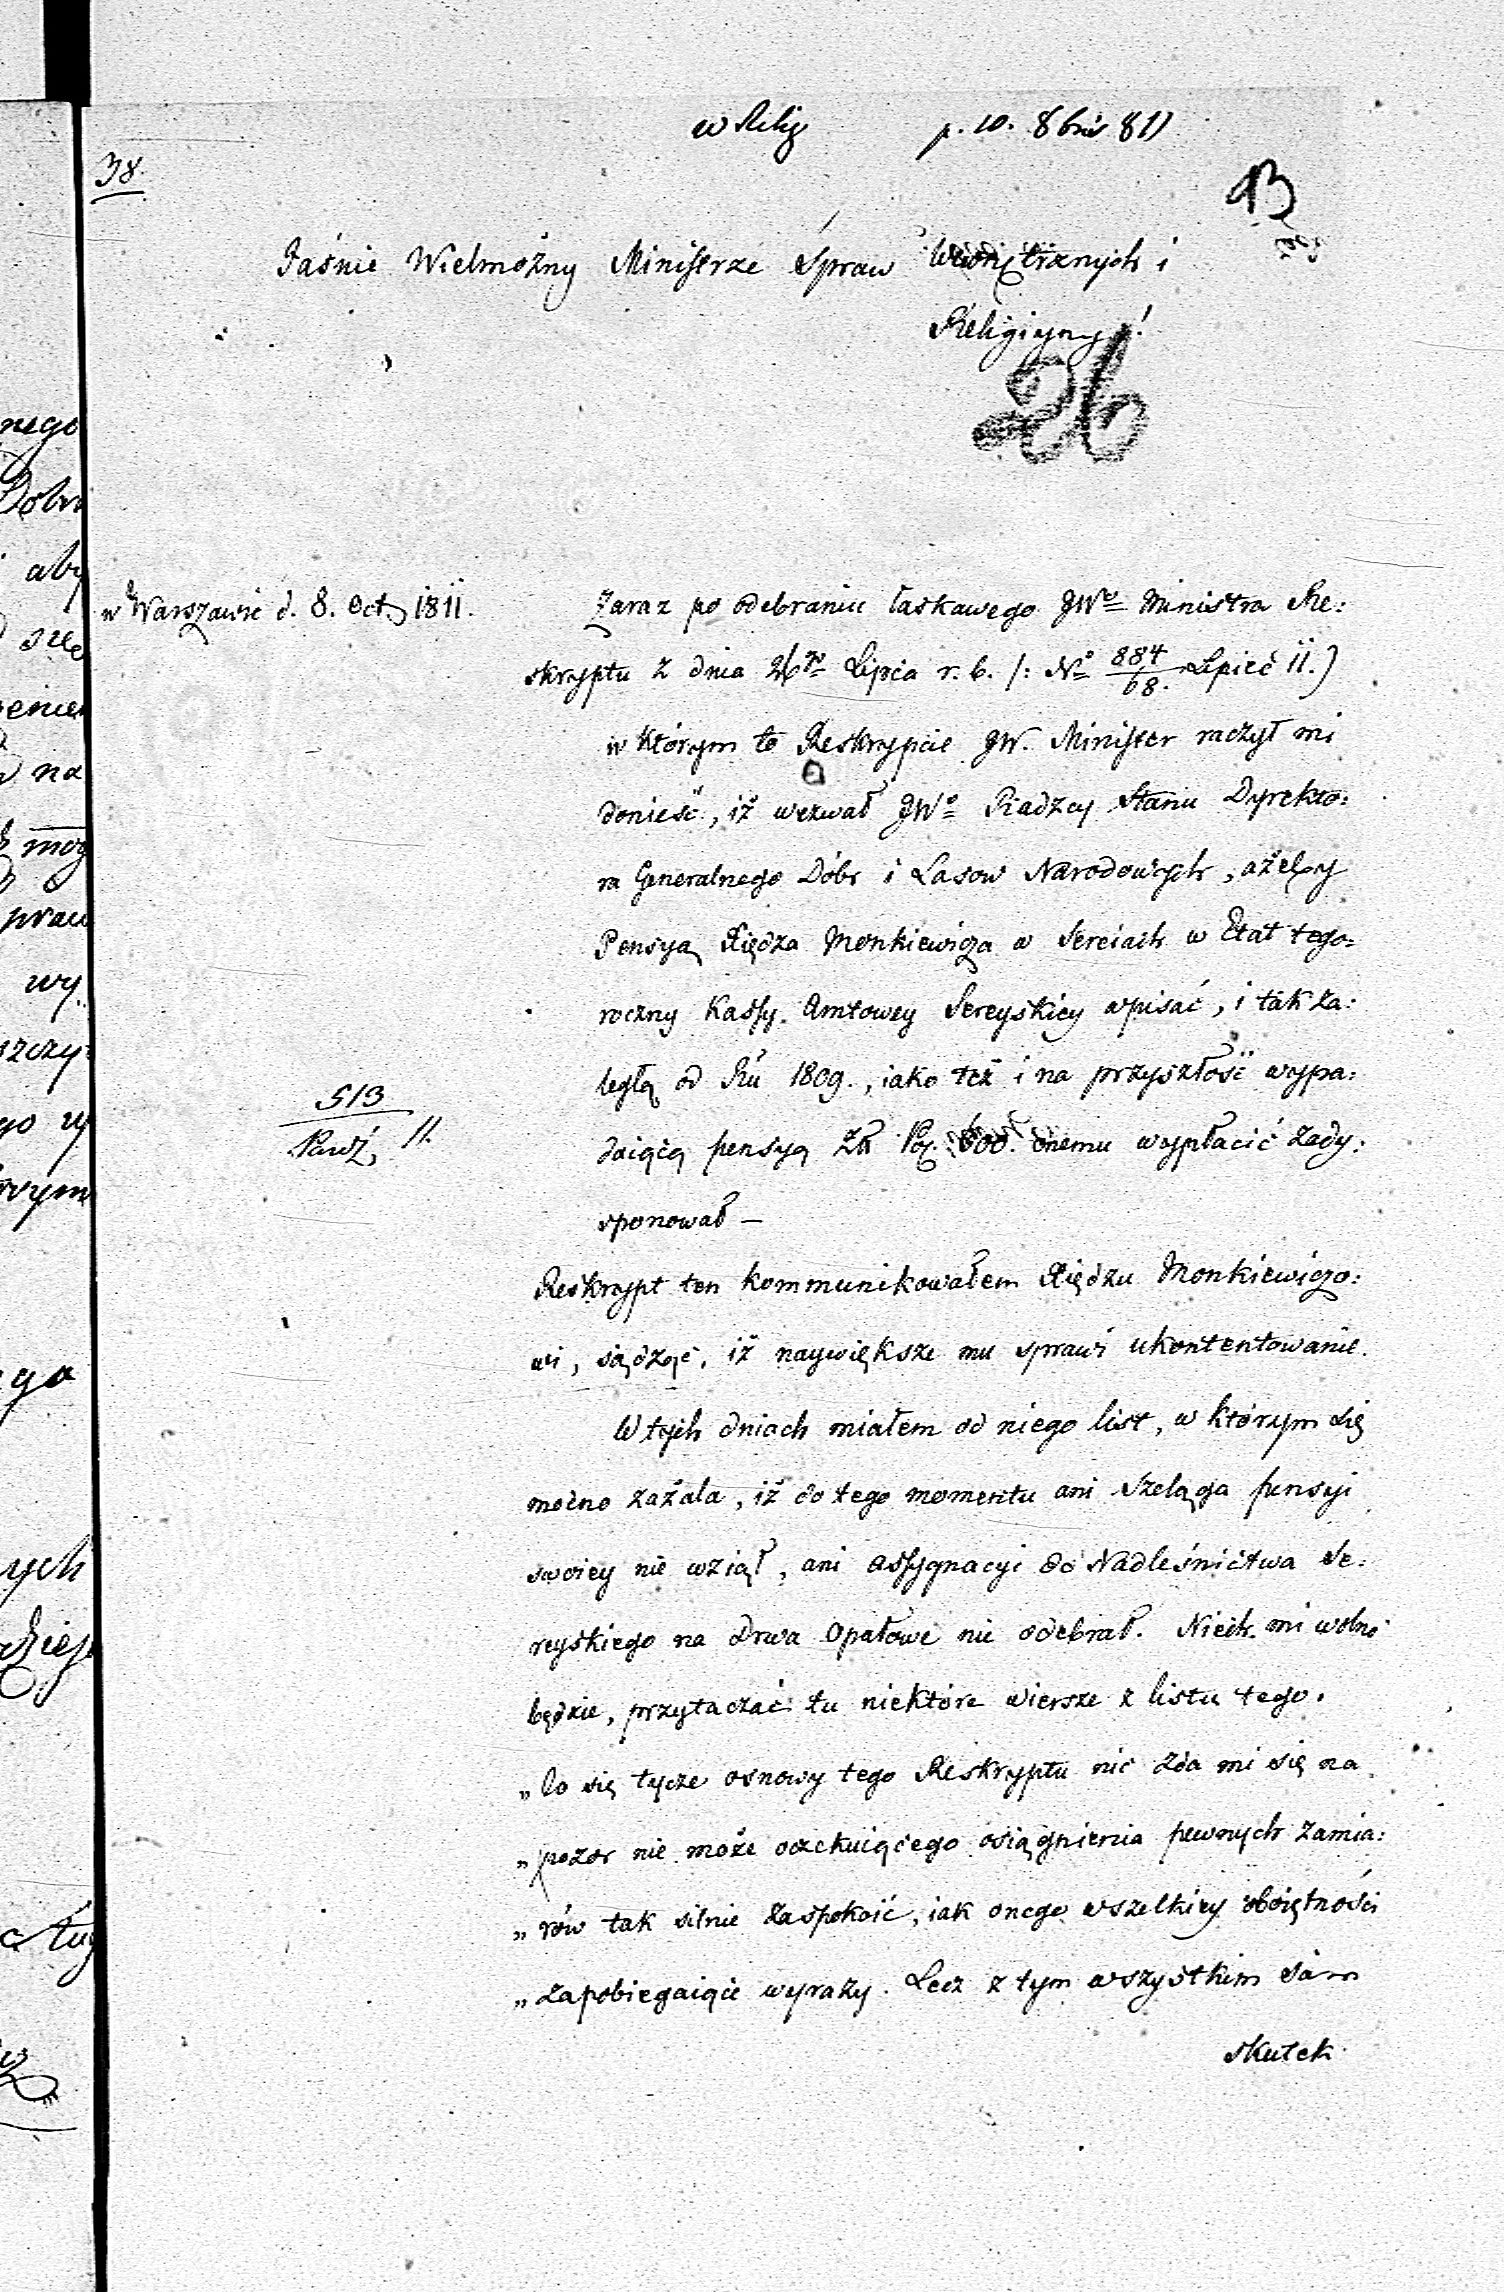 w Relig p. 10. 8bris 811
38.
13
Jaśnie Wielmożny Ministrze Spraw Wewnętrznych i
Religiynych!
26
w Warszawie d. 8. Oct. 1811.
Zaraz po odebraniu łaskawego JWo Ministra Re:
skryptu z dnia 26go Lipca r. b. /: No 884/68. Lipiec 11.)
w którym to Reskrypcie JW. Minister raczył mi
donieść, iż wezwał JWo Radzcy Stanu Dyrekto:
ra Generalnego Dóbr i Lasow Narodowych, ażeby
Pensyą Xiędza Monkiewicza w Sereiach w Etat tego=
roczny Kassy Amtowey Sereyskiey wpisać, i tak za:
ległą od Ru 1809., iako też i na przyszłość wypa:
daiącą pensyą Zł Pol. 600. onemu wypłacić zady:
sponował —
513
Paźd. 11.
Reskrypt ten kommunikowałem Xiędzu Monkiewiczo:
wi, sądząc, iż naywiększe mu sprawi ukontentowanie.
W tych dniach miałem od niego list, w którym się
mocno zażala, iż do tego momentu ani szeląga pensyi
swoiey nie wziął, ani assygnacyi do Nadleśnictwa Se:
reyskiego na drwa opałowe nie odebrał. Niech mi wolno
będzie, przytaczać tu niektóre wiersze z listu tego.
„Co się tycze osnowy tego Reskryptu nic zda mi się na
„pozor nie może oczekuiącego osiągnienia pewnych zamia:
„rów tak silnie zaspokoić, iak onego wszelkiey oboiętności
„zapobiegaiące wyrazy. Lecz z tym wszystkim sam
skutek